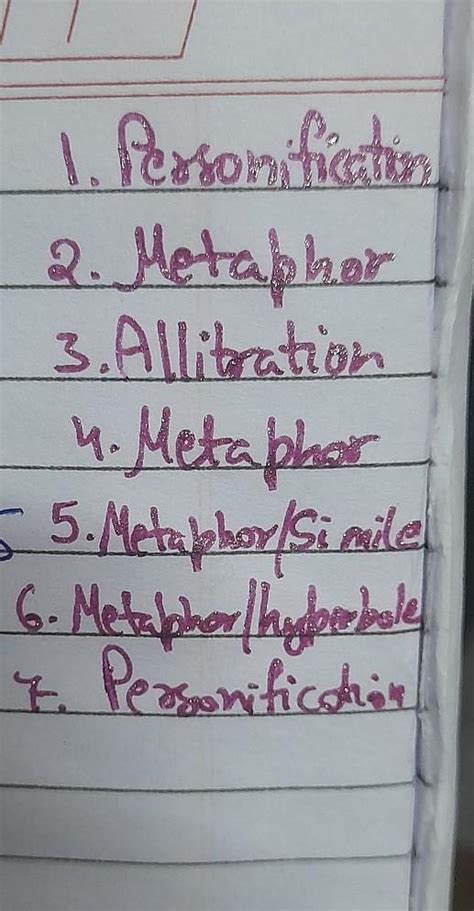 1. Personification
2. Metaphor
3. Allitration
4. Metaphor
5. Metaphor/Simile
6. Metaphor/hyperbole
7. Personification